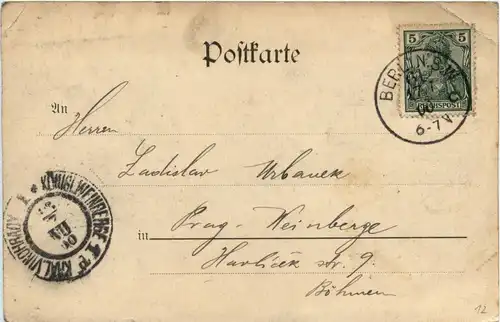 5
REICHSPOST
BERLIN, S.W.
6-7 V
Postkarte
An
Herren
Ladislav Urbanek
in Prag-Weinberge
Havlíček str. 9.
Böhmen
KÖNIGL. WEINBERGE 1
KRÁL. VINOHRADY 1
12